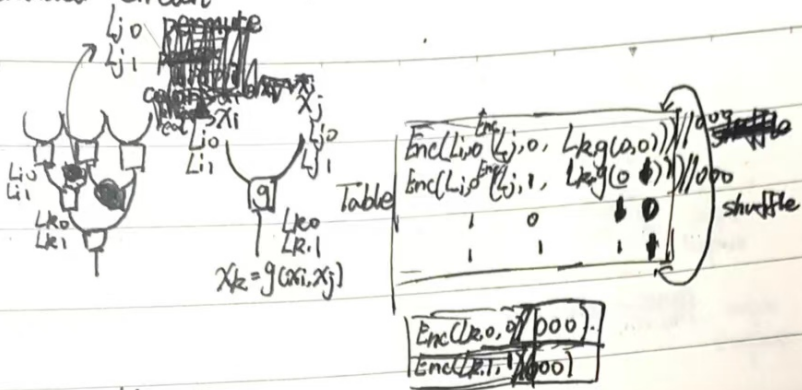 Lj0
Lj1
permute
Xi
Xj
Li0
Li1
Lj0
Lj1
Li0
Li1
g
Lk0
Lk1
Lk0
Lk1
Xk=g(xi,xj)
Table
Enc(Li,0 Enc(Lj,0, Lk,g(0,0)))//000
Enc(Li,0 Enc(Lj,1, Lk,g(0 )))//000
1 0 1 0
1 1 1 1
shuffle
Enc(Lk,0,0//000)
Enc(Lk,1,1//000)